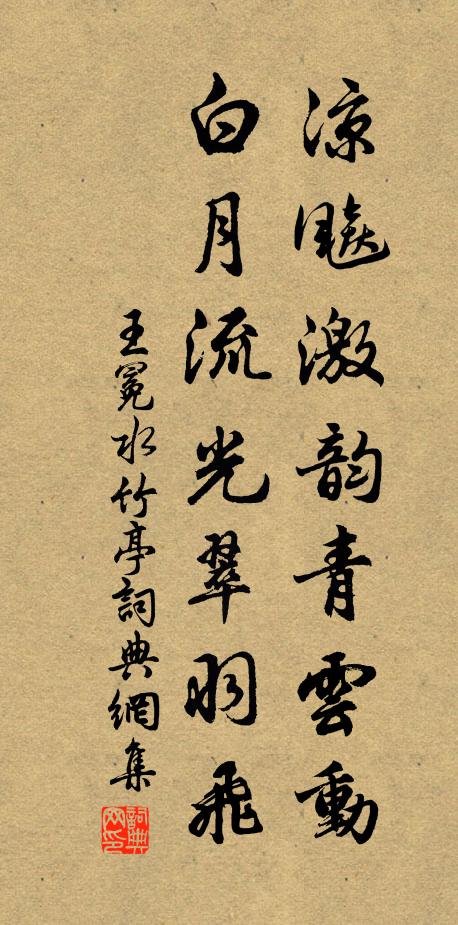 涼飈激韵青雲動
白月流光翠羽飛
王冕水竹亭詞典網集
詞典网印